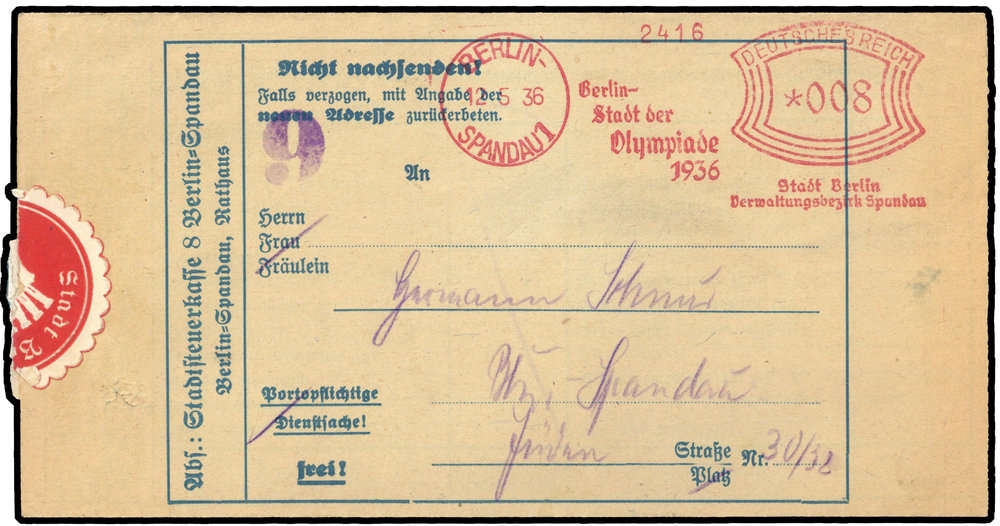 2416
BERLIN-
12.5 36
SPANDAU 1
Berlin-
Stadt der
Olympiade
1936
DEUTSCHES REICH
*008
Stadt Berlin
Verwaltungsbezirk Spandau
Nicht nachsenden!
Falls verzogen, mit Angabe der
neuen Adresse zurückerbeten.
9
An
Herrn
Frau
Fräulein
Hermann
Spandau
Jüden Straße Nr. 30/32
Platz
Portopflichtige
Dienstsache!
frei!
Abs.: Stadtsteuerkasse 8 Berlin-Spandau
Berlin-Spandau, Rathaus
Stadt B